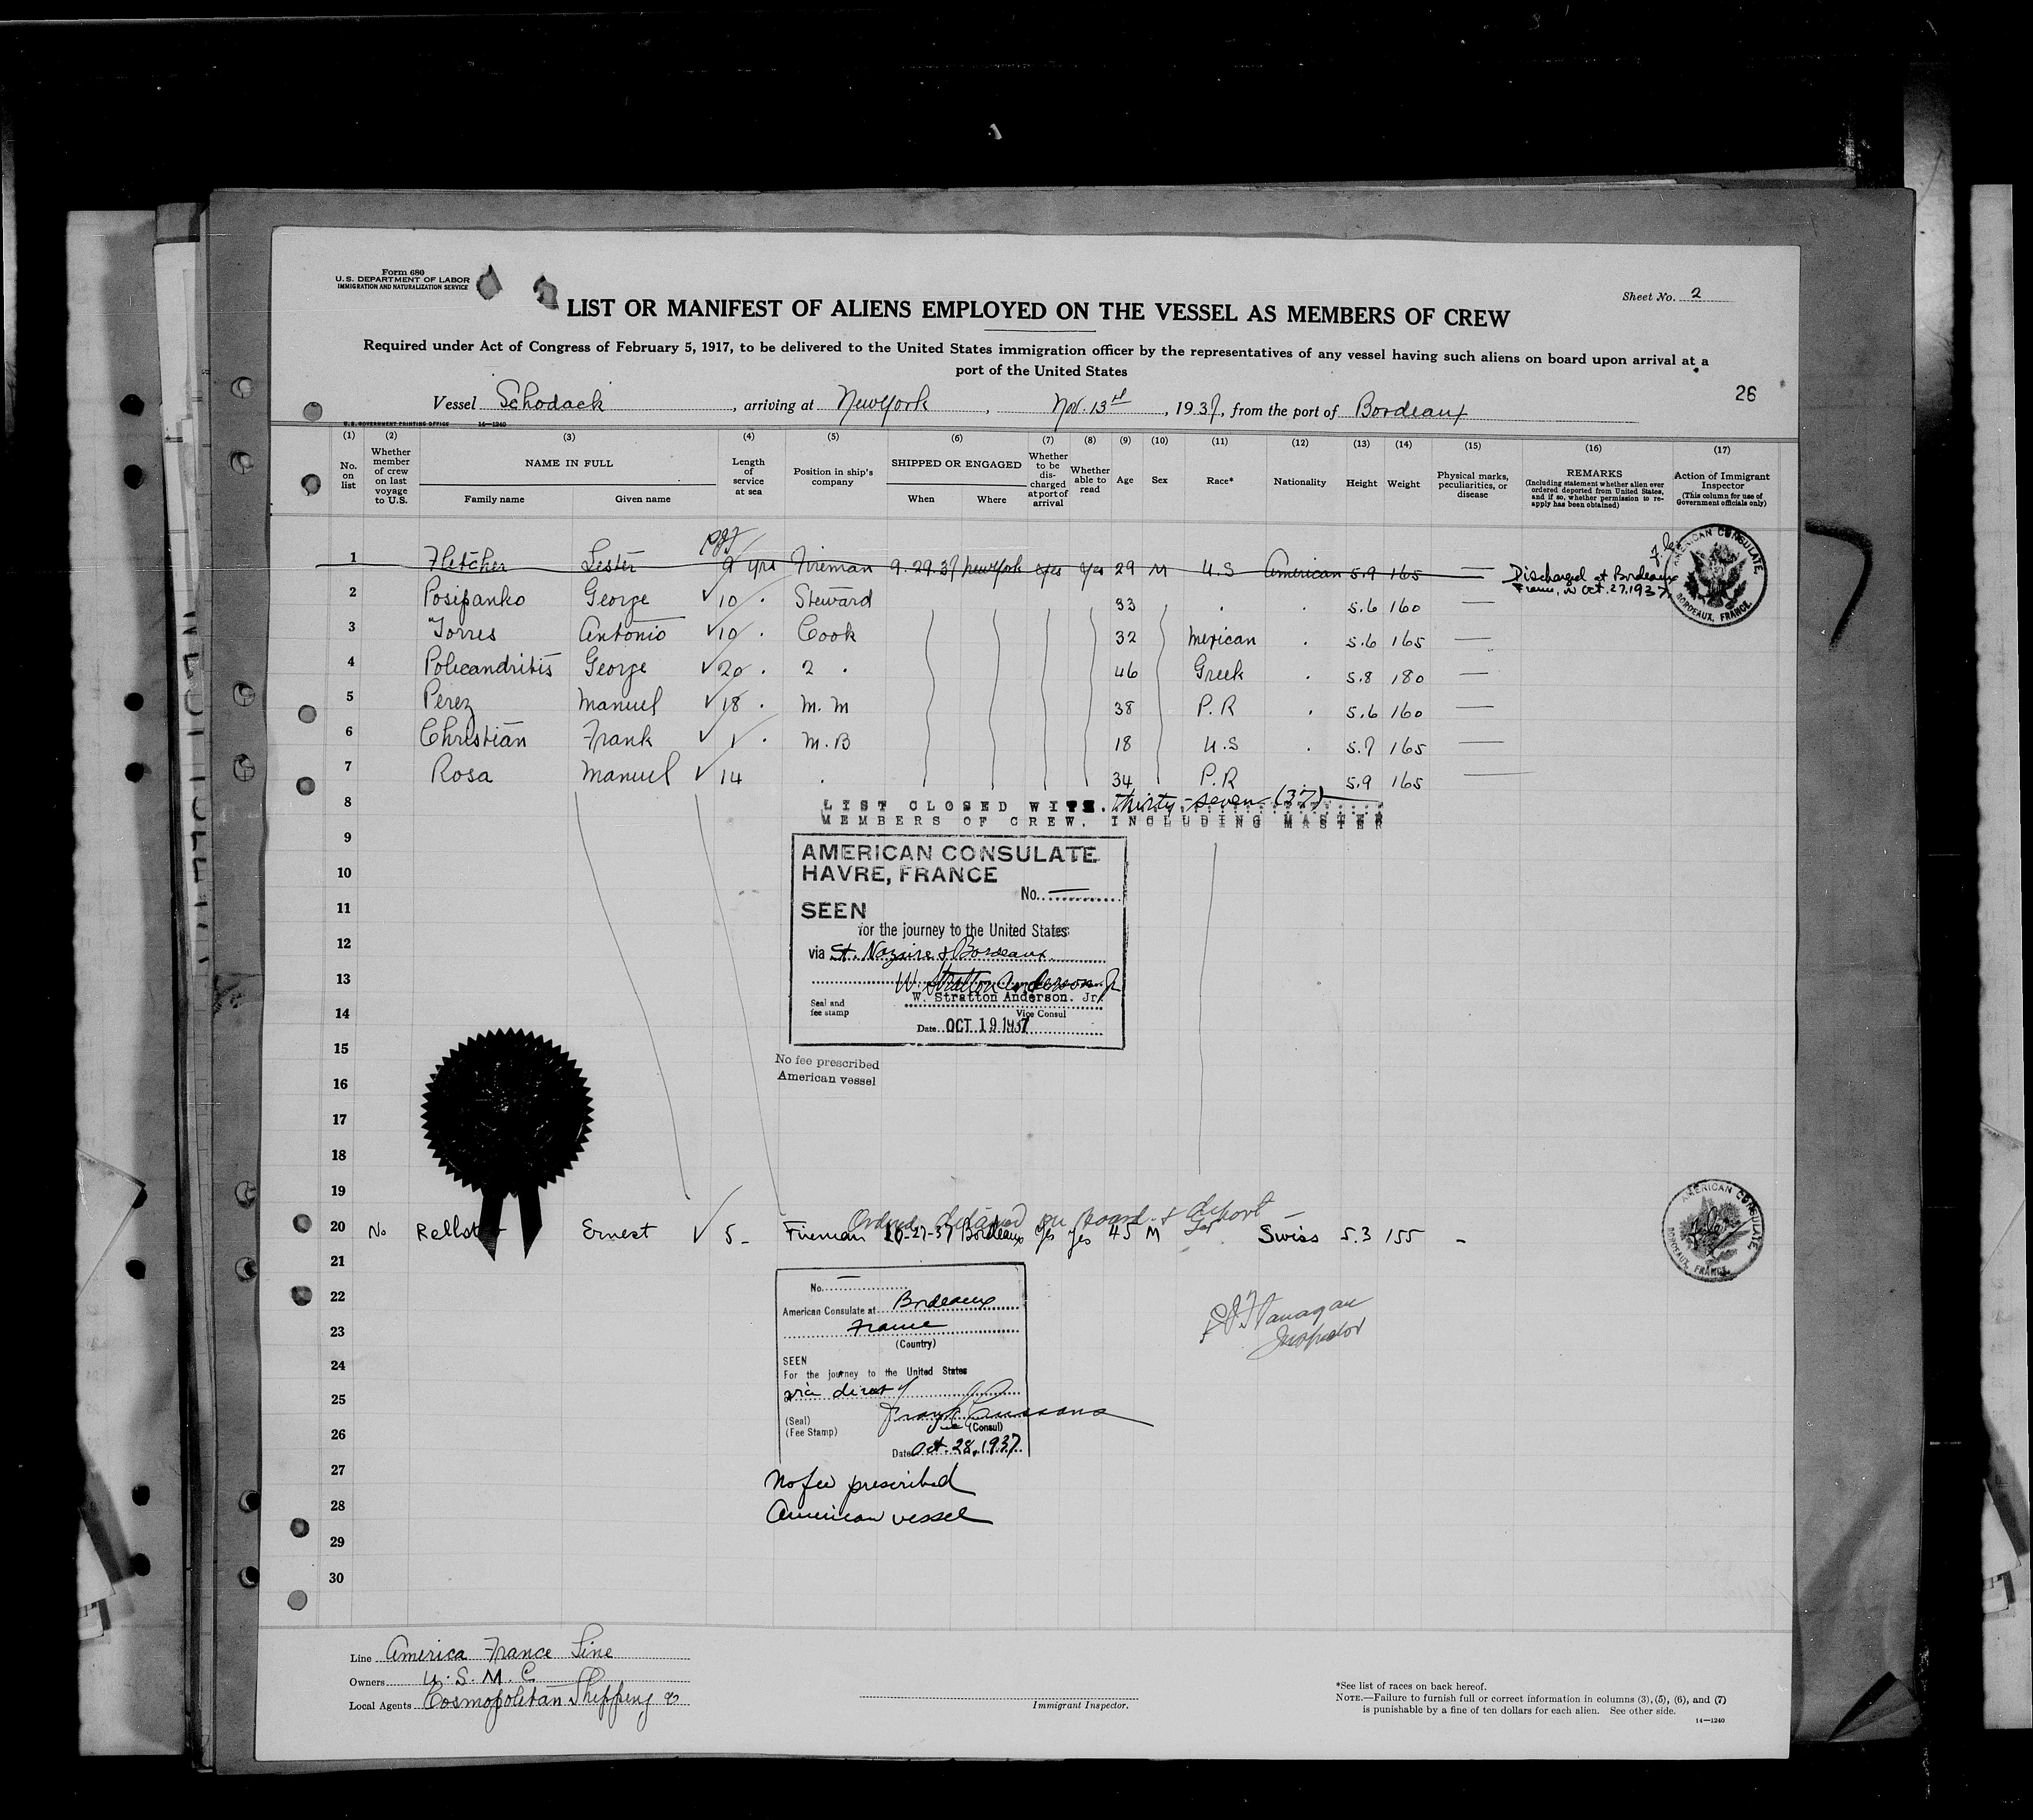 Form 680
U.S. DEPARTMENT OF LABOR
IMMIGRATION AND NATURALIZATION SERVICE
Sheet No. 2
LIST OR MANIFEST OF ALIENS EMPLOYED ON THE VESSEL AS MEMBERS OF CREW
Required under Act of Congress of February 5, 1917, to be delivered to the United States immigration officer by the representatives of any vessel having such aliens on board upon arrival at a
port of the United States
26
Vessel Schodack, arriving at New York, Nov. 13th, 1937, from the port of Bordeaux
U.S. GOVERNMENT PRINTING OFFICE 14—1240
(1) (2) (3) (4) (5) (6) (7) (8) (9) (10) (11) (12) (13) (14) (15) (16) (17)
No. on list
Whether member of crew on last voyage to U.S.
NAME IN FULL
Family name Given name
Length of service at sea
Position in ship's company
SHIPPED OR ENGAGED
When Where
Whether to be discharged at port of arrival
Whether able to read
Age
Sex
Race*
Nationality
Height
Weight
Physical marks, peculiarities, or disease
REMARKS
(Including statement whether alien ever ordered deported from United States, and if so, whether permission to reapply has been obtained)
Action of Immigrant Inspector
(This column for use of Government officials only)
1 Fletcher Lester 9 yrs Fireman 9.29.37 New York Yes Yes 29 M U.S American 5.9 165 — Discharged at Bordeaux
France, on Oct. 27, 1937
AMERICAN CONSULATE, BORDEAUX, FRANCE.
2 Posipanko George ✓ 10 . Steward 33 . . 5.6 160 —
3 Torres Antonio ✓ 10 . Cook 32 Mexican . 5.6 165 —
4 Policandritis George ✓ 20 . 2 . 46 Greek . 5.8 180 —
5 Perez Manuel ✓ 18 . M.M 38 P.R . 5.6 160 —
6 Christian Frank ✓ 1 . M.B 18 U.S . 5.7 165 —
7 Rosa Manuel ✓ 14 . 34 P.R 5.9 165 —
8 LIST CLOSED WITH thirty-seven (37)
MEMBERS OF CREW. INCLUDING MASTER
9
10
11
12
13
14
15
16
17
18
19
AMERICAN CONSULATE
HAVRE, FRANCE
No. —
SEEN
for the journey to the United States
via St. Nazaire & Bordeaux
W. Stratton Anderson Jr
W. Stratton Anderson. Jr.
Seal and fee stamp
Vice Consul
Date OCT 19 1937
No fee prescribed
American vessel
Ordered detained on board & deport
20 No Ernest ✓ 5 - Fireman 10-27-37 Bordeaux Yes Yes 45 M Swiss 5.3 155 -
AMERICAN CONSULATE, BORDEAUX, FRANCE.
21
22
23
24
25
26
27
28
29
30
No. —
American Consulate at Bordeaux
France
(Country)
SEEN
For the journey to the United States
via direct
(Seal)
(Fee Stamp)
(Consul)
Date Oct. 28, 1937
No fee prescribed
American vessel
Flanagan
Inspector
Line America France Line
Owners U.S.M.C.
Local Agents Cosmopolitan Shipping Co
Immigrant Inspector.
*See list of races on back hereof.
NOTE.—Failure to furnish full or correct information in columns (3), (5), (6), and (7)
is punishable by a fine of ten dollars for each alien. See other side.
14—1240